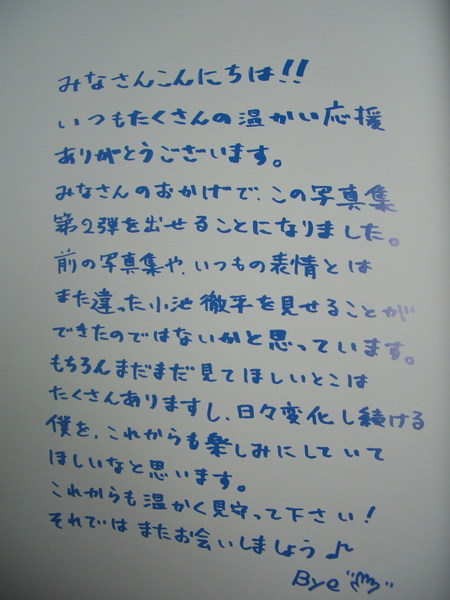 みなさんこんにちは!!
いつもたくさんの温かい応援
ありがとうございます。
みなさんのおかげで、この写真集
第2弾を出せることになりました。
前の写真集や、いつもの表情とは
また違った小池徹平を見せることが
できたのではないかと思っています。
もちろんまだまだ見てほしいとこは
たくさんありますし、日々変化し続ける
僕を、これからも楽しみにしていて
ほしいなと思います。
これからも温かく見守って下さい!
それではまたお会いしましょう♪
Bye